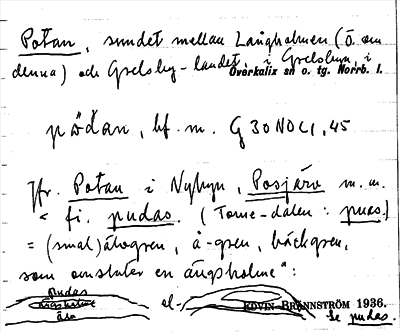 Potan, sundet mellan Långholmen (Ö. om
denna) och Grelsby-landet i Grelsbyn, i
Överkalix sn o. tg. Norrb. l.
pöδan, bf. m. G 30 NO C 1, 45
Jfr. Potan i Nybyn, Posjärv m. m.
< fi. pudas. (Torne-dalen: puas.)
= (små)älvgren, å-gren, bäckgren,
som omsluter en ängsholme":
pudas
ängsholme
älv
el.
EDVIN BRÄNNSTRÖM 1936.
Se pudas.